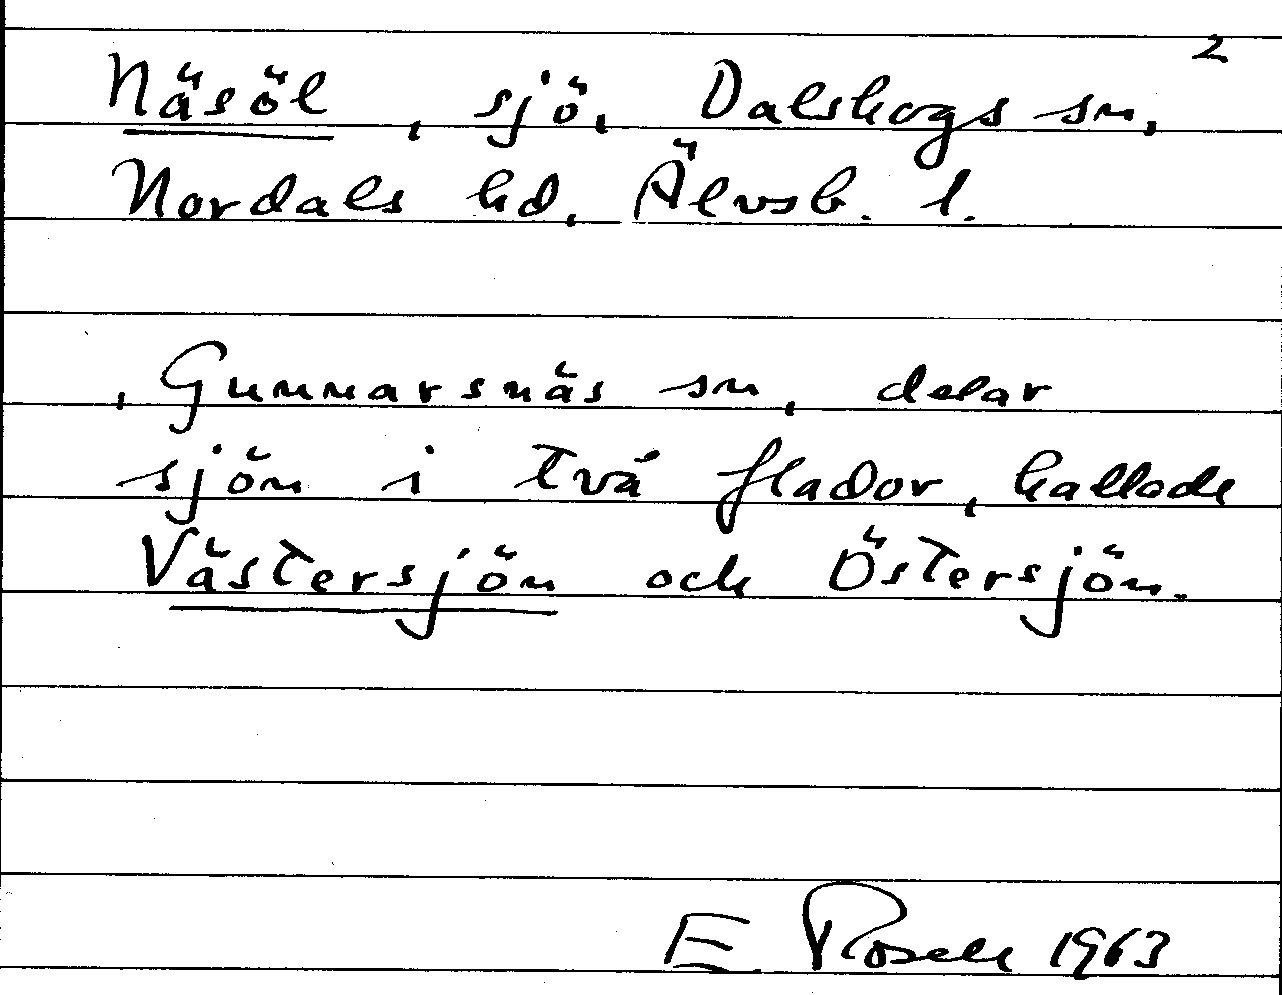 2
Näsöl, sjö, Dalskogs sn,
Nordals hd, Älvsb. l.
, Gunnarsnäs sn, delar
sjön i två flador, kallade
Västersjön och Östersjön.
E Rosell 1963